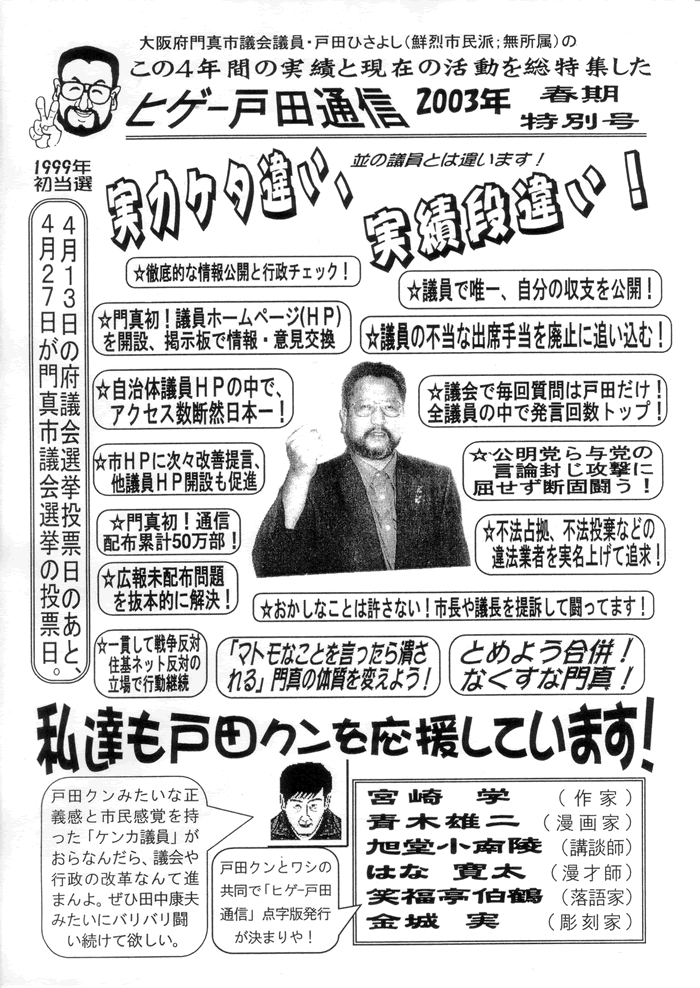 大阪府門真市議会議員・戸田ひさよし（鮮烈市民派；無所属）の
この４年間の実績と現在の活動を総特集した
ヒゲー戸田通信 2003年 春期
特別号
1999年
初当選
４月１３日の府議会選挙投票日のあと、
４月２７日が門真市議会選挙の投票日。
並の議員とは違います！
実力ケタ違い、
実績段違い！
☆徹底的な情報公開と行政チェック！
☆議員で唯一、自分の収支を公開！
☆門真初！議員ホームページ(ＨＰ)
を開設、掲示板で情報・意見交換
☆議員の不当な出席手当を廃止に追い込む！
☆自治体議員ＨＰの中で、
アクセス数断然日本一！
☆議会で毎回質問は戸田だけ！
全議員の中で発言回数トップ！
☆市ＨＰに次々改善提言、
他議員ＨＰ開設も促進
☆公明党ら与党の
言論封じ攻撃に
屈せず断固闘う！
☆門真初！通信
配布累計50万部！
☆不法占拠、不法投棄などの
違法業者を実名上げて追求！
☆広報未配布問題
を抜本的に解決！
☆おかしなことは許さない！市長や議長を提訴して闘ってます！
☆一貫して戦争反対
住基ネット反対の
立場で行動継続
「マトモなことを言ったら潰さ
れる」門真の体質を変えよう！
とめよう合併！
なくすな門真！
私達も戸田クンを応援しています！
戸田クンみたいな正
義感と市民感覚を持
った「ケンカ議員」が
おらなんだら、議会や
行政の改革なんて進
まんよ。ぜひ田中康夫
みたいにバリバリ闘
い続けて欲しい。
戸田クンとワシの
共同で「ヒゲー戸田
通信」点字版発行
が決まりや！
宮崎 学 （作家）
青木雄二 （漫画家）
旭堂小南陵 （講談師）
はな 寛太 （漫才師）
笑福亭伯鶴 （落語家）
金城 実 （彫刻家）